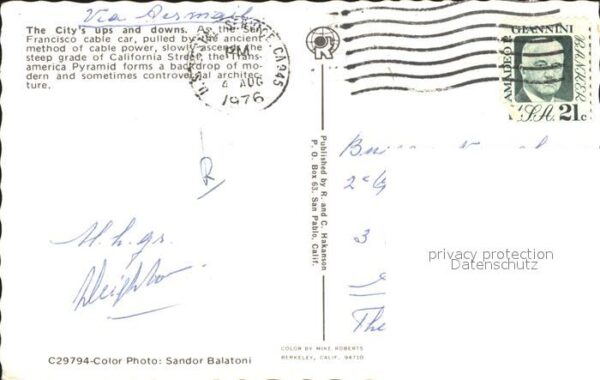 Via Airmail
The City's ups and downs. As the San
Francisco cable car, pulled by the ancient
method of cable power, slowly ascends the
steep grade of California Street, the Trans-
america Pyramid forms a backdrop of mo-
dern and sometimes controversial architec-
ture.
CA 945
PM
4 AUG
1976
R
AMADEO P. GIANNINI
BANKER
USA 21c
Published by R. and C. Hakanson
P. O. Box 63, San Pablo, Calif.
R
3
The
privacy protection
Datenschutz
COLOR BY MIKE ROBERTS
BERKELEY, CALIF. 94710
C29794-Color Photo: Sandor Balatoni